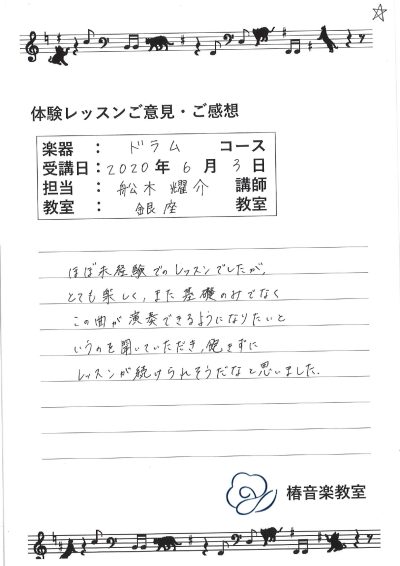 体験レッスンご意見・ご感想
楽器 : ドラム コース
受講日 : 2020 年 6 月 3 日
担当 : 舩木 耀介 講師
教室 : 銀座 教室
ほぼ未経験でのレッスンでしたが、
とても楽しく、また基礎のみでなく
この曲が演奏できるようになりたいと
いうのを聞いていただき、飽きずに
レッスンが続けられそうだなと思いました。
椿音楽教室